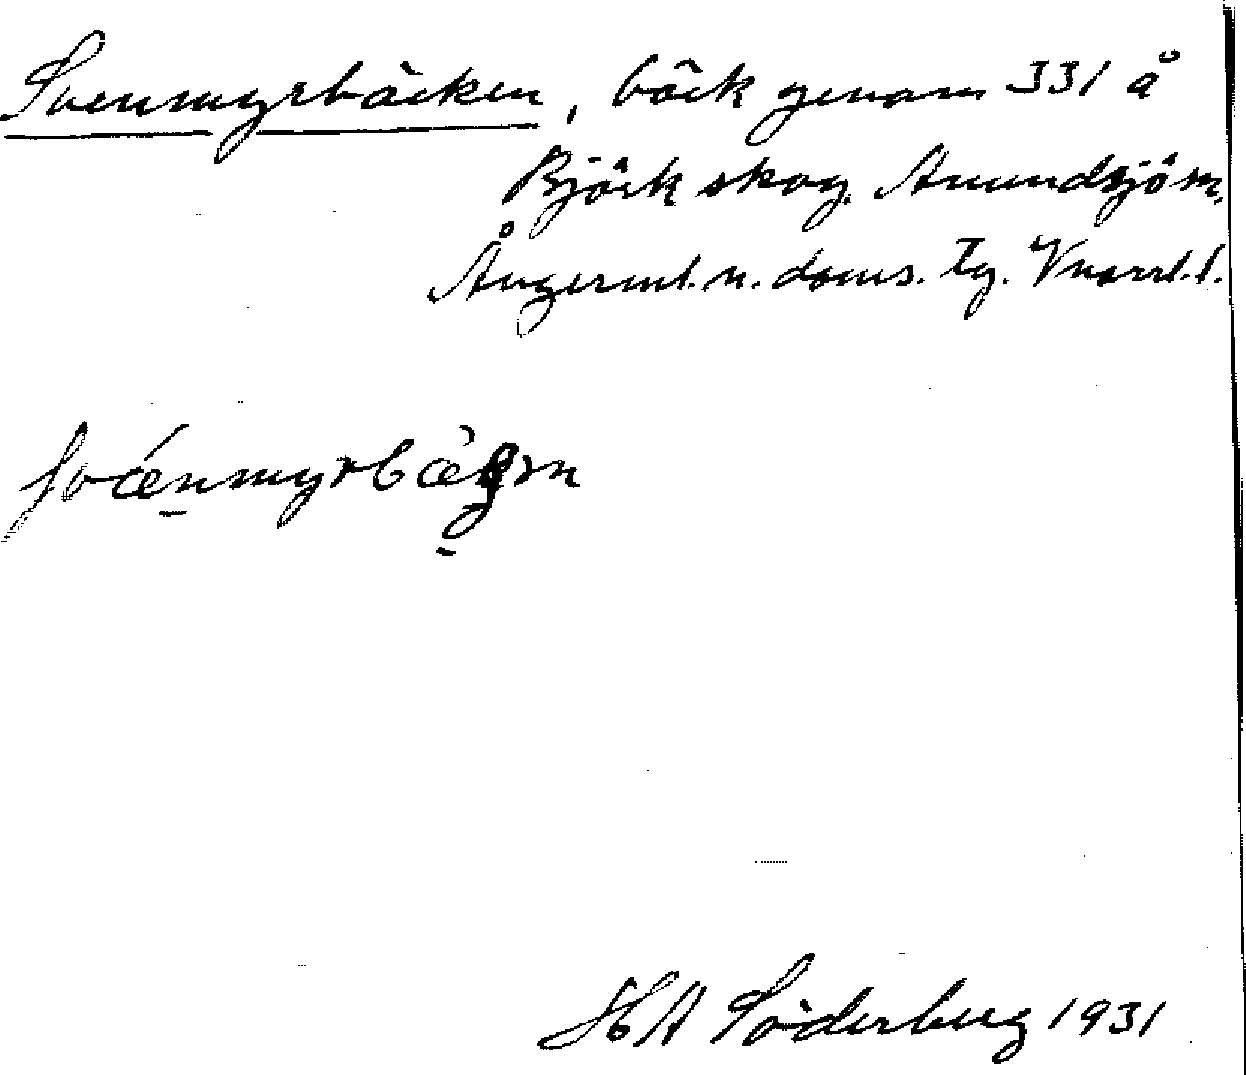 Svenmyrbäcken, bäck genom 331 å
Björk skog. Anundsjö sn,
Ångerml. n. doms. Tg. Vnorrl. l.
svænmyrbæ̀kən
HA Söderberg 1931